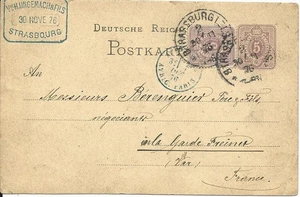 30 NOVE. 76
STRASBOURG
DEUTSCHE REICHS
POSTKARTE
STRASSBURG
5
An
Messieurs Bérenguier Père & fils
négociants
La Garde Freinet
(Var)
France